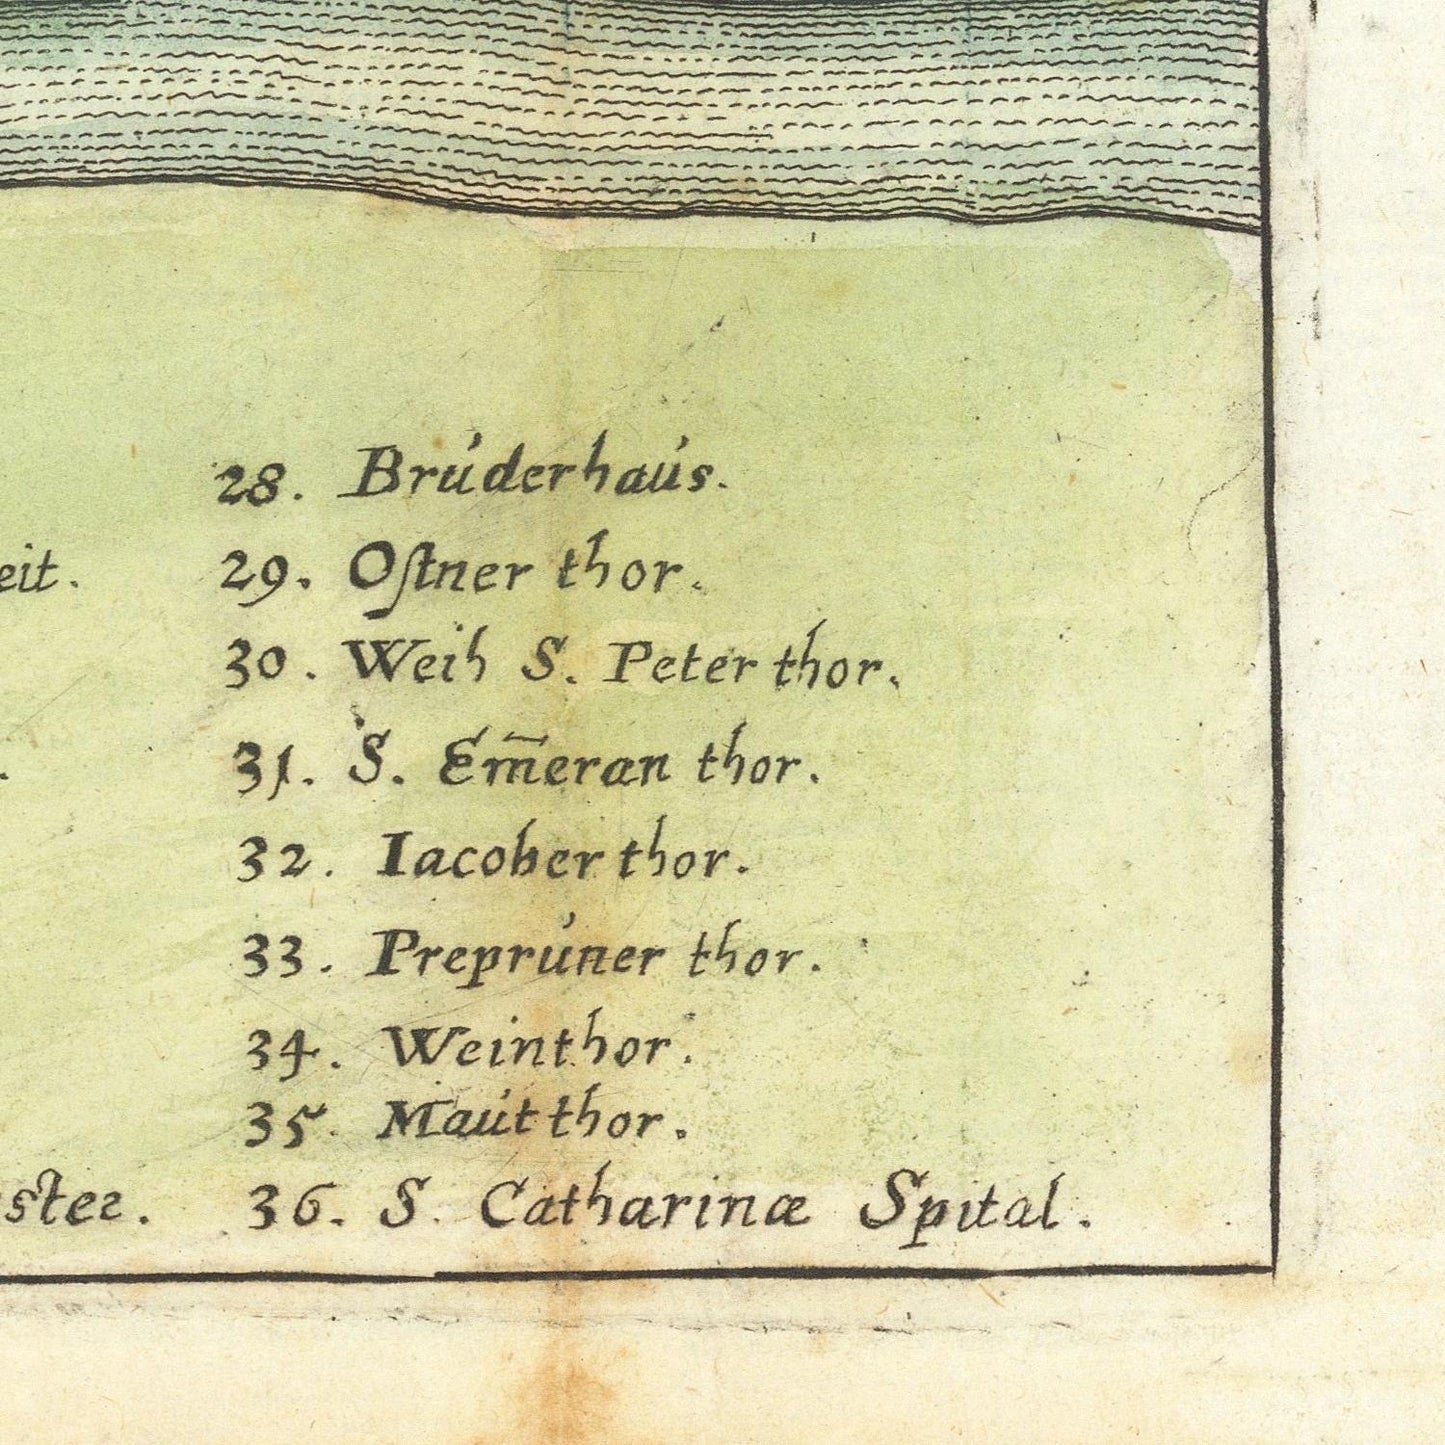 28. Brúderhaús.
eit. 29. Oſtner thor.
30. Weih S. Peter thor.
31. S. Em̄eran thor.
32. Iacober thor.
33. Preprúner thor.
34. Weinthor.
35. Maút thor.
ster. 36. S. Catharinæ Spital.